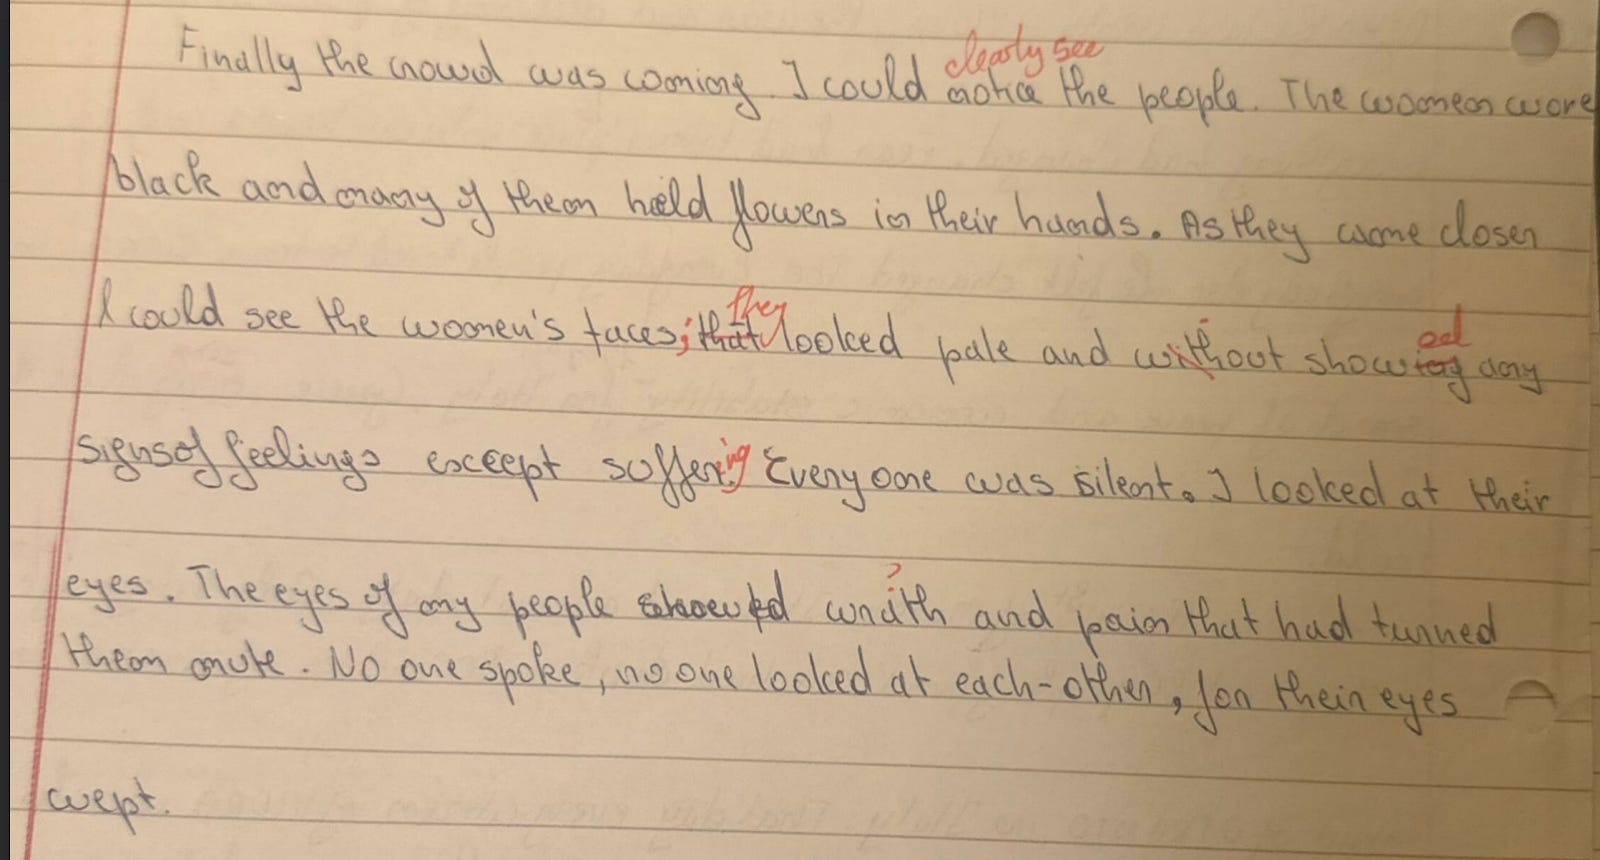 clearly see
Finally the crowd was coming. I could notice the people. The women wore
black and many of them held flowers in their hands. As they came closer
they
I could see the women's faces; that looked pale and without showing any
ed
signs of feelings except suffering Everyone was silent. I looked at their
?
eyes. The eyes of my people showed wrath and pain that had turned
them mute. No one spoke, no one looked at each-other, for their eyes
wept.